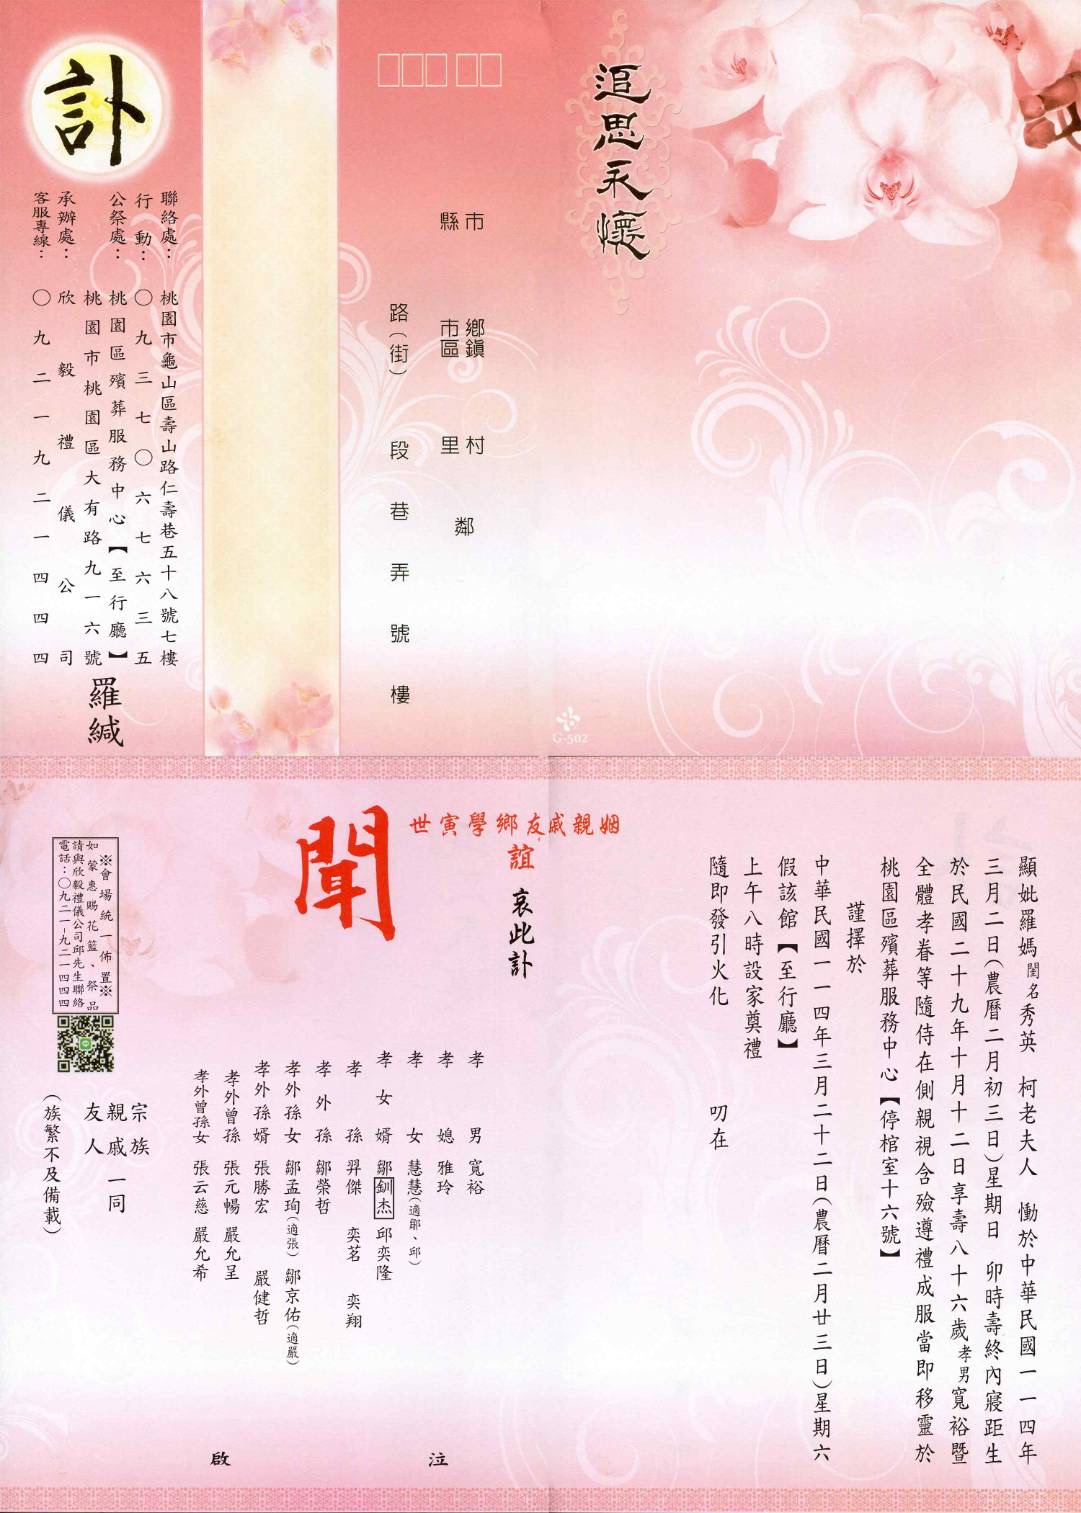 追思永懷
G-502
市
縣
鄉鎮
市區
村
里
鄰
路(街)
段
巷
弄
號
樓
訃
聯絡處：桃園市龜山區壽山路仁壽巷五十八號七樓
行動：〇九三七〇六七六三五
公祭處：桃園區殯葬服務中心【至行廳】
桃園市桃園區大有路九一六號
承辦處：欣毅禮儀公司
客服專線：〇九二一九二一四四四
羅緘
顯妣羅媽閨名秀英　柯老夫人　慟於中華民國一一四年
三月二日(農曆二月初三日)星期日　卯時壽終內寢距生
於民國二十九年十月十二日享壽八十六歲孝男寬裕暨
全體孝眷等隨侍在側親視含殮遵禮成服當即移靈於
桃園區殯葬服務中心【停棺室十六號】
謹擇於
中華民國一一四年三月二十二日(農曆二月廿三日)星期六
假該館【至行廳】
上午八時設家奠禮
隨即發引火化　叨在
姻親戚友鄉學寅世
誼　哀此訃
聞
孝男　寬裕
孝媳　雅玲
孝女　慧慧(適鄒、邱)
孝女婿　鄒釧杰　邱奕隆
孝孫　羿傑　奕茗　奕翔
孝外孫　鄒榮哲
孝外孫女　鄒孟珣(適張)　鄒京佑(適嚴)
孝外孫婿　張勝宏　嚴健哲
孝外曾孫　張元暢　嚴允呈
孝外曾孫女　張云慈　嚴允希
泣
啟
宗族
親戚一同
友人
(族繁不及備載)
※會場統一佈置※
如蒙惠賜花籃、祭品
請與欣毅禮儀公司邱先生聯絡
電話：〇九二一-九二一四四四